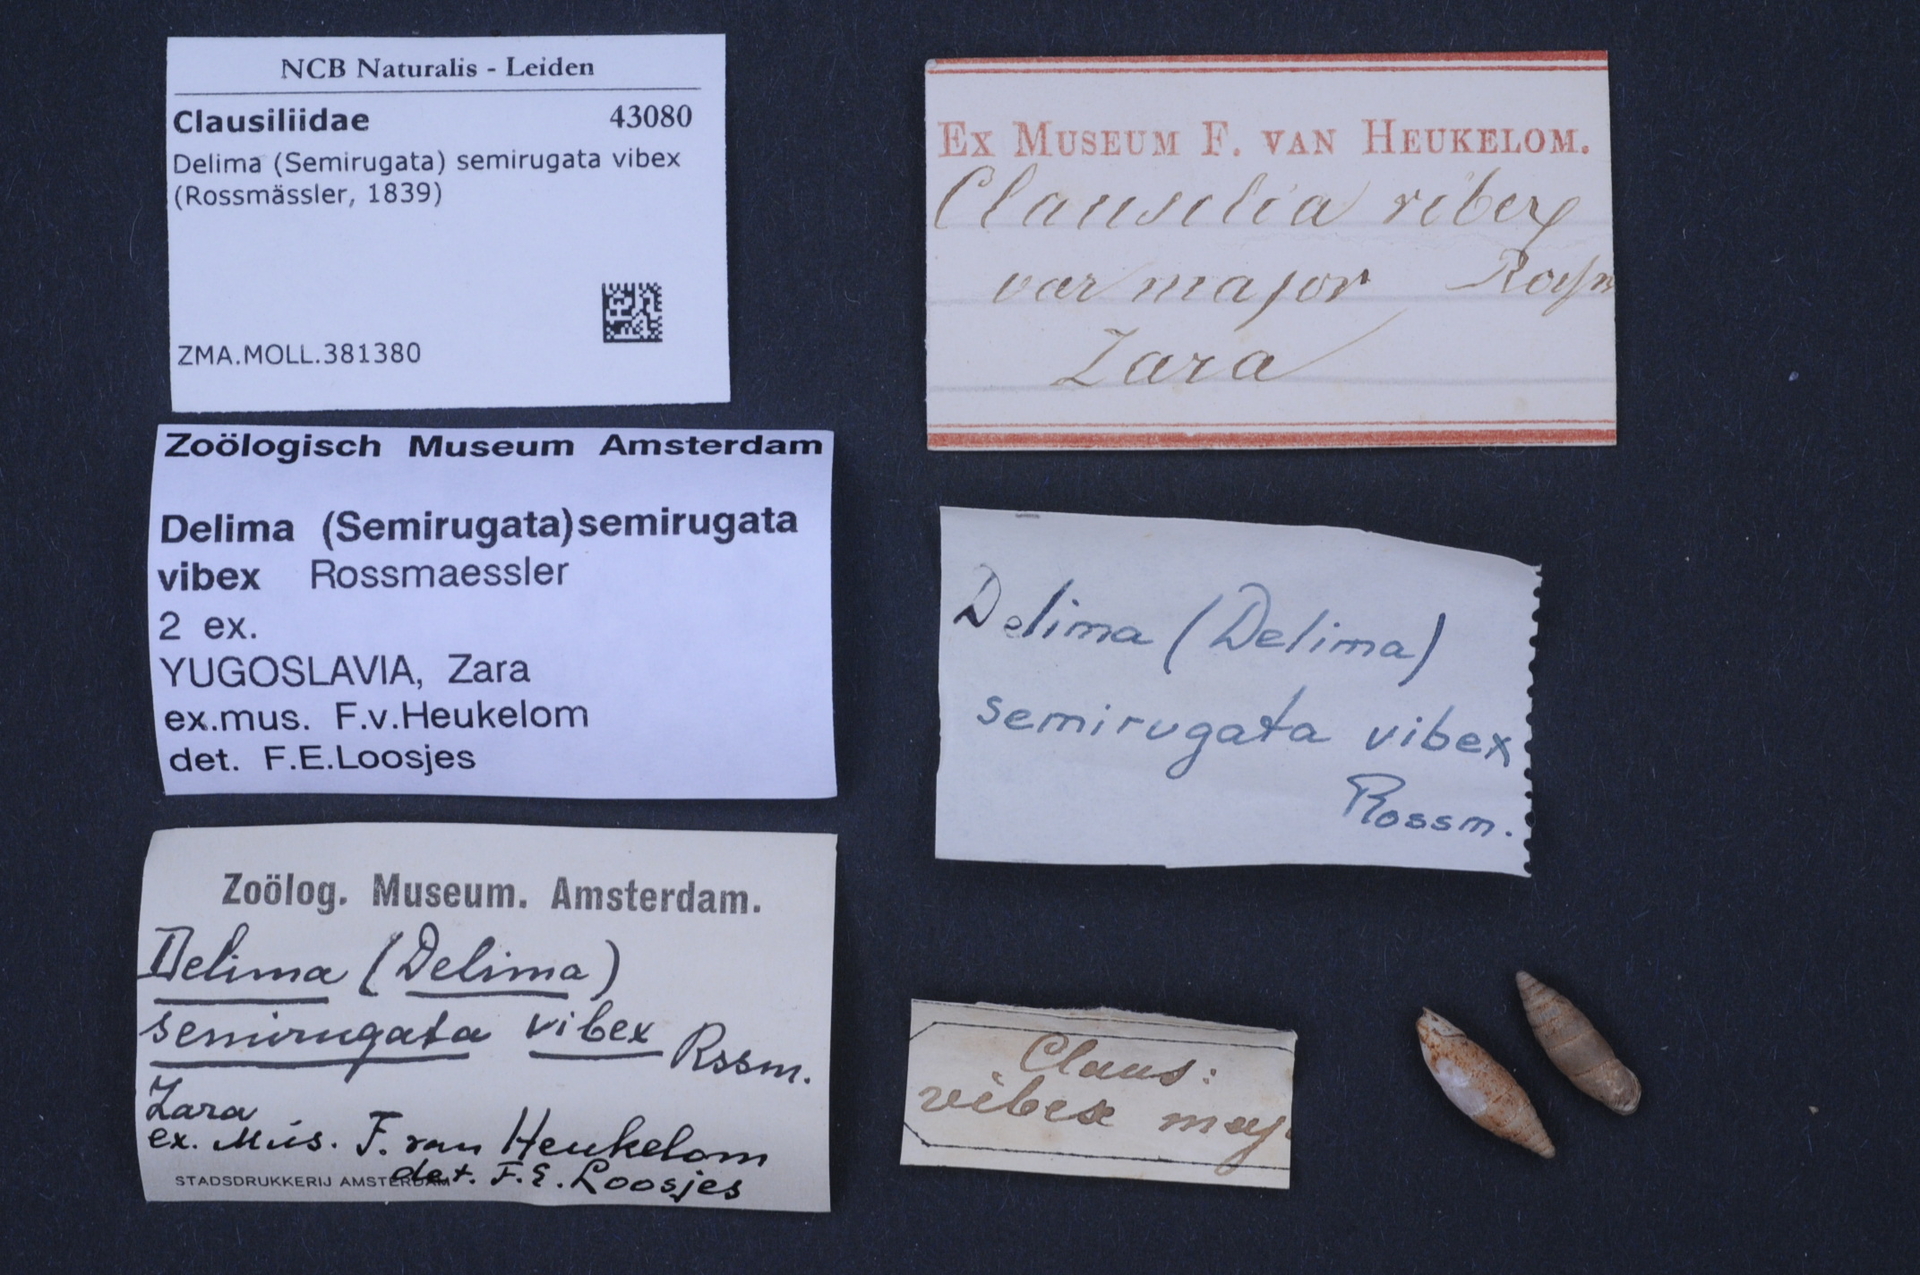 NCB Naturalis - Leiden
Clausiliidae 43080
Delima (Semirugata) semirugata vibex
(Rossmässler, 1839)
ZMA.MOLL.381380
Zoölogisch Museum Amsterdam
Delima (Semirugata) semirugata
vibex Rossmaessler
2 ex.
YUGOSLAVIA, Zara
ex.mus. F.v.Heukelom
det. F.E.Loosjes
Zoölog. Museum. Amsterdam.
Delima (Delima)
semirugata vibex Rssm.
Zara
ex. Mus. F. van Heukelom
det. F.E. Loosjes
STADSDRUKKERIJ AMSTERDAM
EX MUSEUM F. VAN HEUKELOM.
Clausilia vibex
var major
Zara
Delima (Delima)
semirugata vibex
Rossm.
Claus:
vibex maj